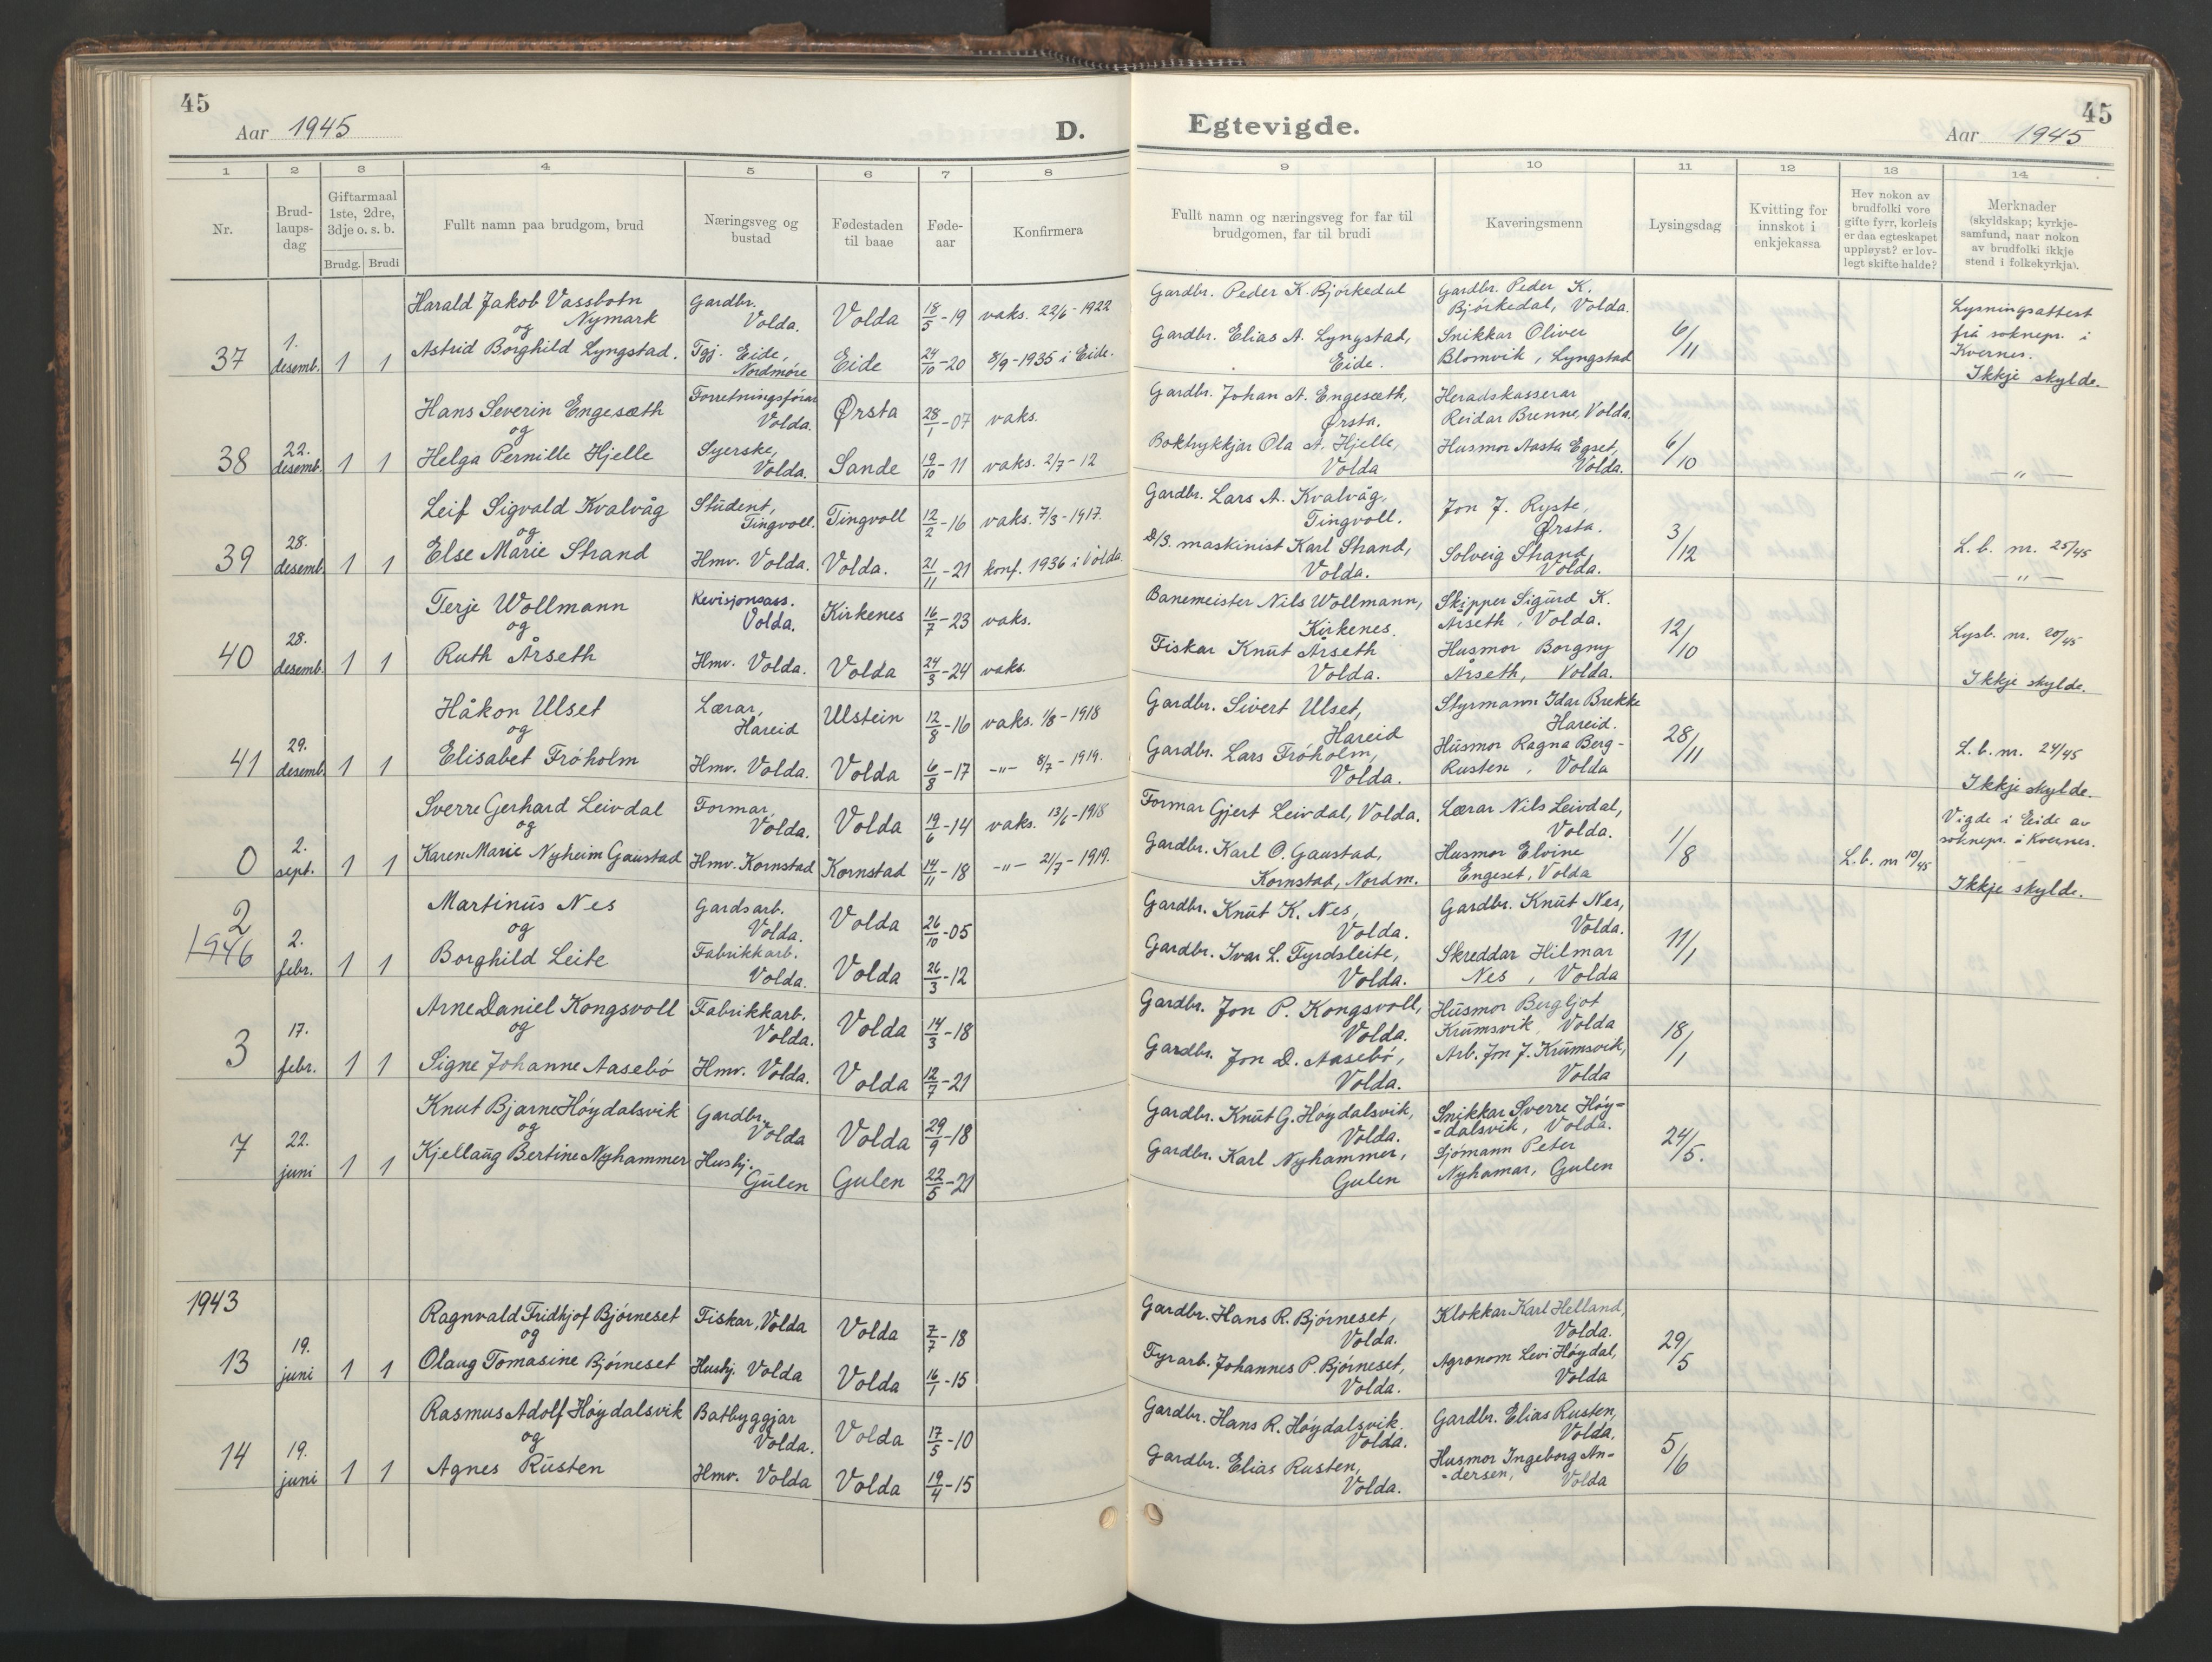 45
Aar 1945
D.
1
2
3
4
5
6
7
8
Nr.
Brud-
laups-
dag
Giftarmaal
1ste, 2dre,
3dje o. s. b.
Brudg. Brudi
Fullt namn paa brudgom, brud
Næringsveg og
bustad
Fødestaden
til baae
Føde-
aar
Konfirmera
37
1.
desemb.
1 1
Harald Jakob Vassbotn
Nymark
og
Astrid Borghild Lyngstad.
Gardbr.
Volda.
Tgj. Eide,
Nordmøre
Volda
Eide
18/5-19
24/10-20
vaks. 22/6-1922
8/9-1935 i Eide.
38
22.
desemb.
1 1
Hans Severin Engesæth
og
Helga Pernille Hjelle
Forretningsførar
Volda.
Syerske,
Volda.
Ørsta
Sande
28/1-07
19/10-11
vaks.
vaks. 2/7-12
39
28.
desemb.
1 1
Leif Sigvald Kvalvåg
og
Else Marie Strand
Student,
Tingvoll.
Hmv. Volda.
Tingvoll
Volda.
12/2-16
21/11-21
vaks. 7/3-1917.
konf. 1936 i Volda.
40
28.
desemb.
1 1
Terje Wollmann
og
Ruth Årseth
Revisjonsass.
Volda.
Hmv. Volda.
Kirkenes
Volda
16/7-23
24/3-24
vaks.
vaks.
41
29.
desemb.
1 1
Håkon Ulset
og
Elisabet Fróholm
Lærar,
Hareid
Hmv. Volda.
Ulstein
Volda
12/8-16
6/8-17
vaks. 1/8-1918
-"- 8/7-1919.
0
2.
sept.
1 1
Sverre Gerhard Leivdal
og
Karen Marie Nyheim Gaustad
Formar,
Volda.
Hmv. Kornstad
Volda
Kornstad
19/6-14
14/11-18
vaks. 13/6-1918
-"- 21/7-1919.
2
1946
2.
febr.
1 1
Martinus Nes
og
Borghild Leite
Gardsarb.
Volda.
Fabrikkarb.
Volda.
Volda
Volda
26/10-05
26/3-12
3
17.
febr.
1 1
Arne Daniel Kongsvoll
og
Signe Johanne Aasebó
Fabrikkarb.
Volda.
Hmv. Volda.
Volda
Volda
14/3-18
12/7-21
7
22.
juni
1 1
Knut Bjarne Hóydalsvik
og
Kjellaug Bertine Nyhammer
Gardbr.
Volda
Hushj.
Gulen
Volda
Gulen
29/9-18
22/5-21
1943
13
19.
juni
1 1
Ragnvald Fridtjof Bjórneset
og
Olaug Tomasine Bjórneset
Fiskar, Volda
Hushj. Volda
Volda
Volda
7/7-18
16/1-15
14
19.
juni
1 1
Rasmus Adolf Hóydalsvik
og
Agnes Rusten
Batbyggjar
Volda.
Hmv. Volda
Volda
Volda
17/5-10
19/4-15
Egtevigde.
45
Aar 1945
9
10
11
12
13
14
Fullt namn og næringsveg for far til
brudgomen, far til brudi
Kaveringsmenn
Lysingsdag
Kvitting for
innskot i
enkjekassa
Hev nokon av
brudfolki vore
gifte fyrr, korleis
er daa egteskapet
uppløyst? er lov-
legt skifte halde?
Merknader
(skyldskap; kyrkje-
samfund, naar nokon
av brudfolki ikkje
stend i folkekyrkja).
Gardbr. Peder K. Bjórkedal
Gardbr. Elias A. Lyngstad,
Eide.
Gardbr. Peder K.
Bjórkedal, Volda.
Snikkar Oliver
Blomvik, Lyngstad
6/11
Lysningsattest
frå soknepr. i
Kvernes.
Ikkje skylde.
Gardbr. Johan A. Engesæth,
Ørsta.
Boktrykkjar Ola A. Hjelle,
Volda
Heradskasserar
Reidar Brenne, Volda.
Husmor Aasta Egset,
Volda.
6/10
— " —
Gardbr. Lars A. Kvalvåg,
Tingvoll.
D/S. maskinist Karl Strand,
Volda.
Jon J. Ryste,
Ørsta.
Solveig Strand,
Volda.
3/12
L. b. nr. 25/45
— " —
Banemeister Nils Wollmann,
Kirkenes.
Fiskar Knut Årseth
Volda.
Skipper Sigurd K.
Årseth, Volda.
Husmor Borgny
Årseth, Volda.
12/10
Lysb. nr. 20/45
Ikkje skylde.
Gardbr. Sivert Ulset,
Hareid
Gardbr. Lars Fróholm,
Volda.
Styrmann Idar Brekke
Hareid.
Husmor Ragna Berg-
Rusten, Volda
28/11
L. b. nr. 24/45
Ikkje skylde.
Formar Gjert Leivdal, Volda.
Gardbr. Karl O. Gaustad,
Kornstad, Nordm.
Lærar Nils Leivdal,
Volda.
Husmor Elvine
Engeset, Volda
1/8
L. b. nr 10/45
Vigde i Eide av
soknepr. i Kvernes.
Ikkje skylde.
Gardbr. Knut K. Nes,
Volda.
Gardbr. Ivar L. Fyrdsleite,
Volda.
Gardbr. Knut Nes,
Volda.
Skreddar Hilmar
Nes, Volda
11/1
Gardbr. Jon P. Kongsvoll,
Volda.
Gardbr. Jon D. Aasebó,
Volda.
Husmor Bergljot
Krumsvik, Volda
Arb. Jon J. Krumsvik,
Volda
18/1
Gardbr. Knut G. Hóydalsvik,
Volda.
Gardbr. Karl Nyhammer,
Gulen
Snikkar Sverre Hóy=
=dalsvik, Volda.
Sjómann Peter
Nyhamar, Gulen
24/5.
Gardbr. Hans R. Bjórneset,
Volda.
Fyrarb. Johannes P. Bjórneset,
Volda.
Klokkar Karl Helland,
Volda.
Agronom Levi Hóydal,
Volda
29/5
Gardbr. Hans R. Hóydalsvik.
Volda.
Gardbr. Elias Rusten,
Volda.
Gardbr. Elias Rusten,
Volda,
Husmor Ingeborg An=
=dersen, Volda
5/6